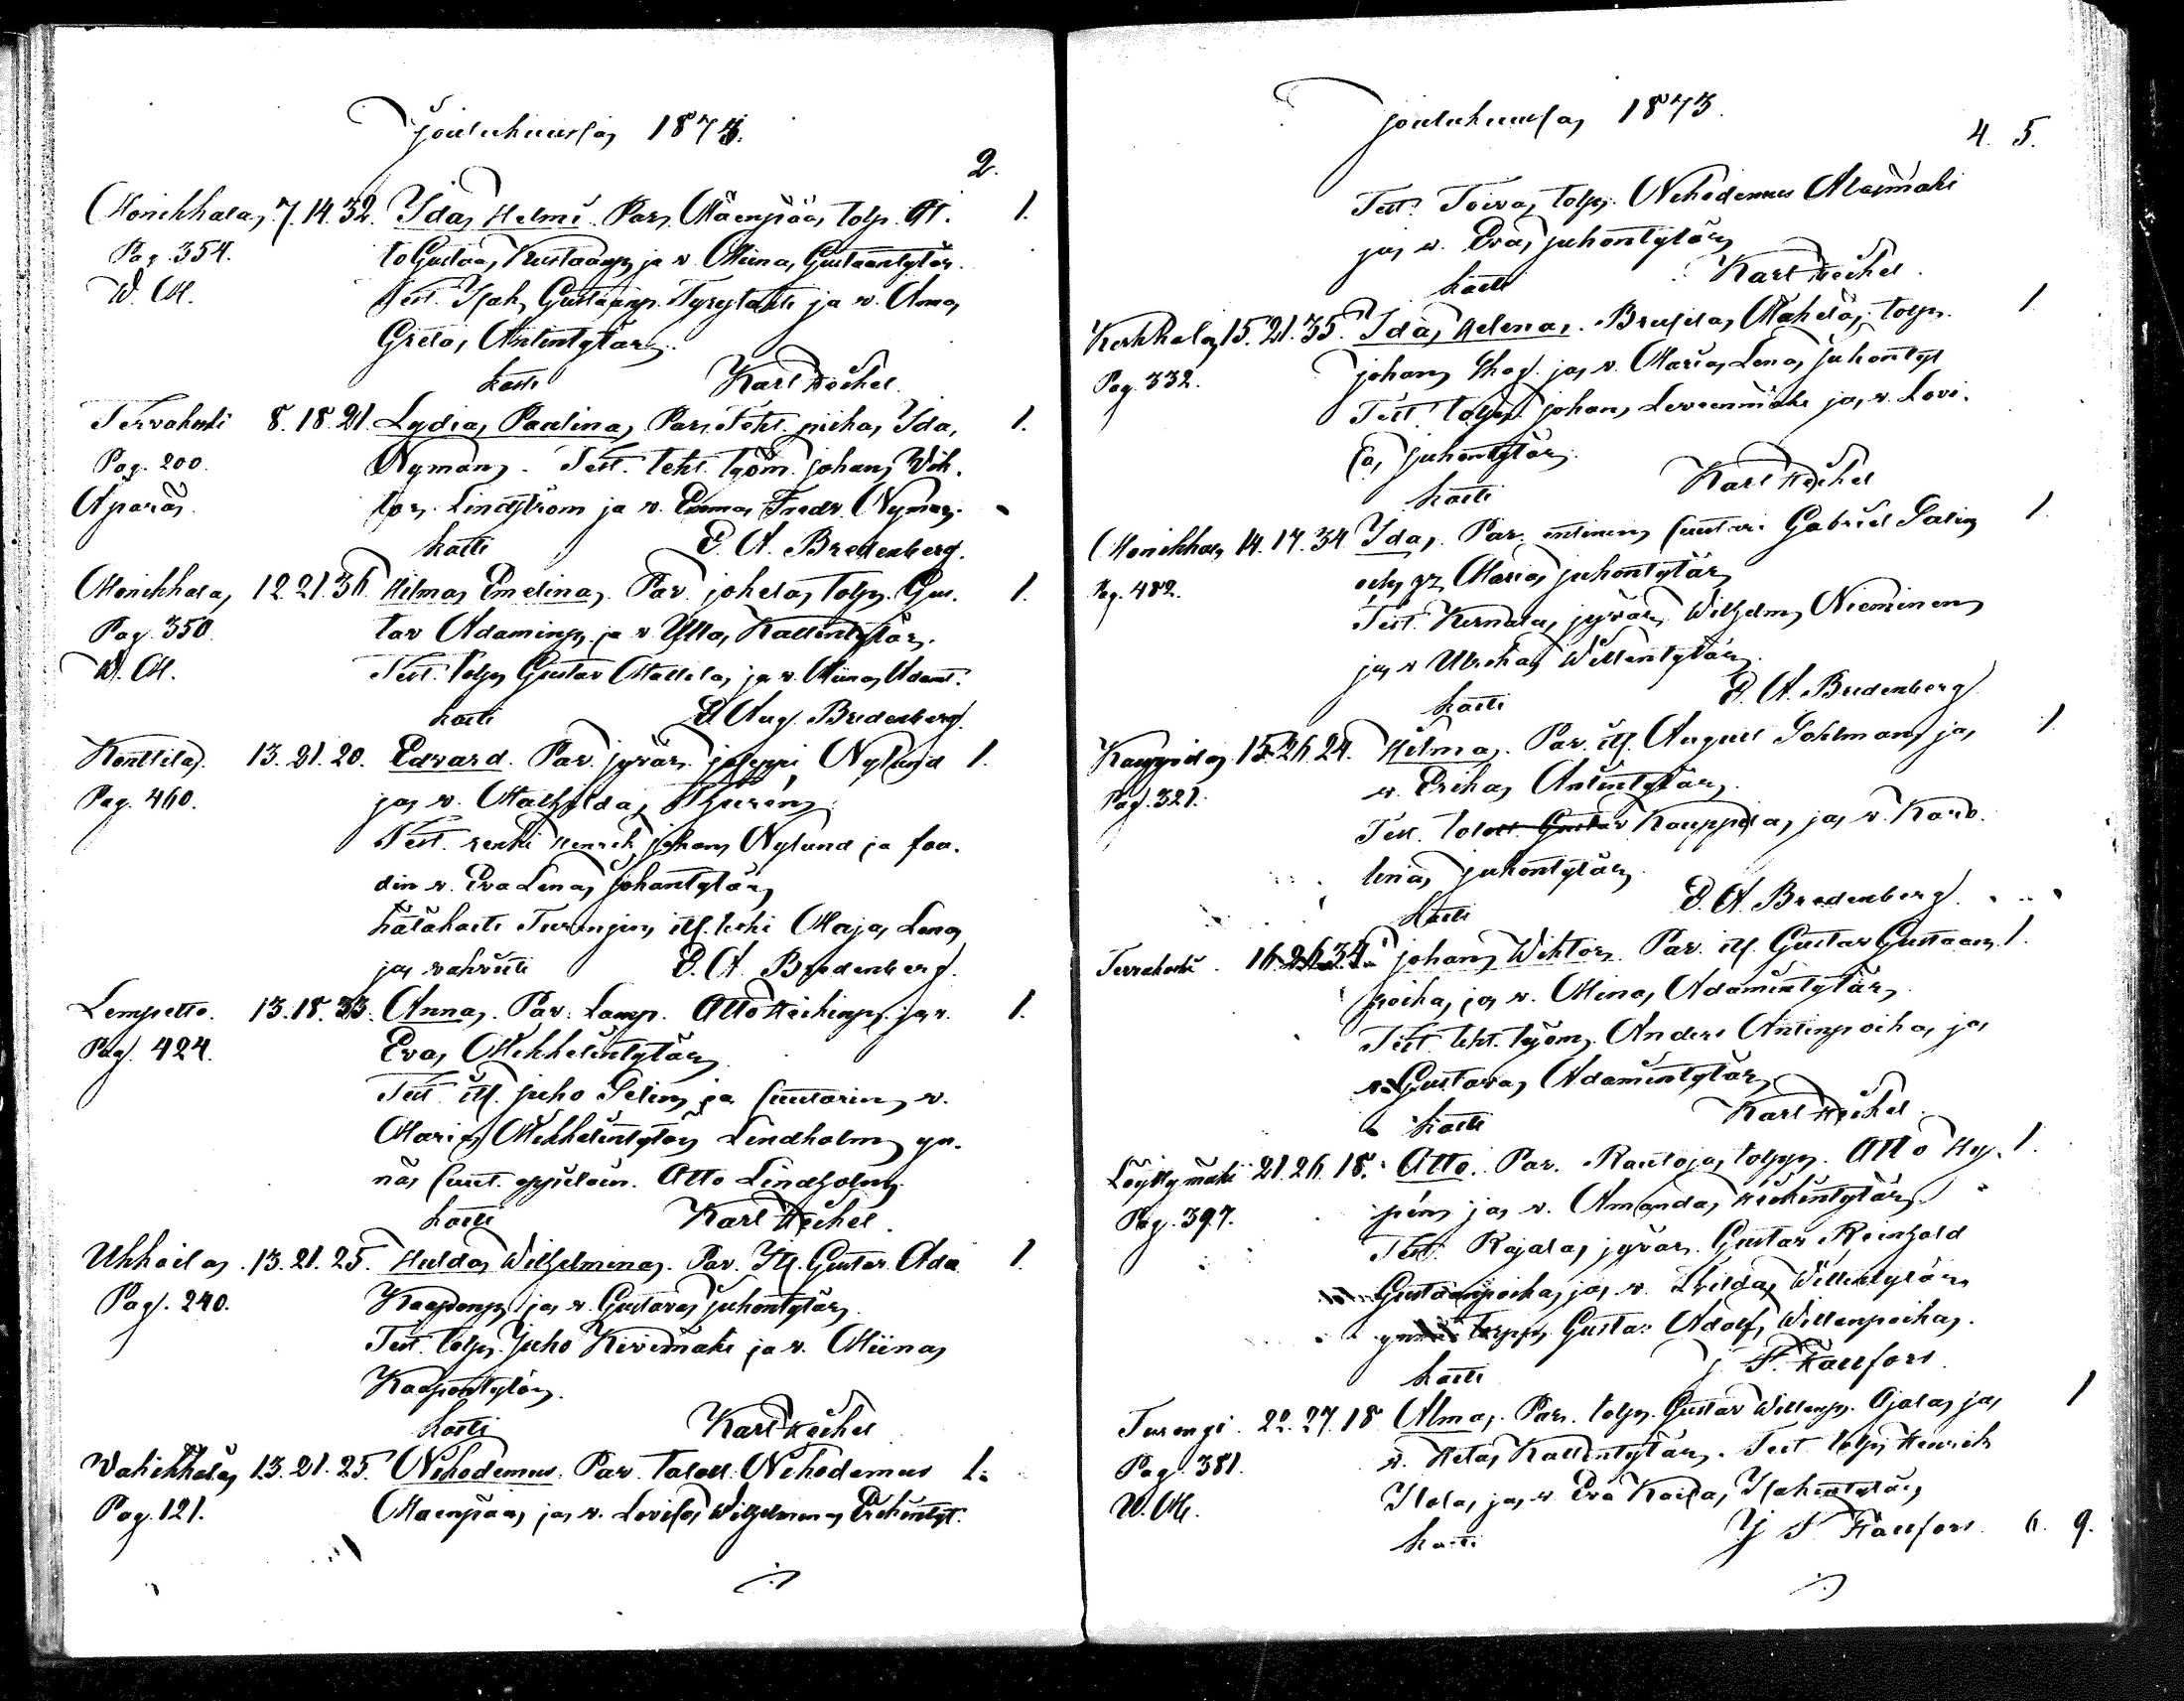 Joulukuussa 1873.
2.
Monikkala, 7. 14. 32. Ida Helmi. Par. Mäenpää, tolp. At. 1.
Pag. 354. to Gustaa, Kustaanp. ja v. Miina, Gustaantytär.
W. M. Test. Isak Gustaanp. Tyrylahti ja v. Anna
Greta, Antintytär.
kasti Karl Heikel.
Tervakoski 8. 18. 21. Lydia, Paulina, Par. Teht. piika, Ida, 1.
Pag. 200. Nyman. Test. teht. työm. Johan, Wik.
Äpärä. tor, Lindström ja v. Emma Fredr. Nyman.
kasti E. A. Bredenberg.
Monikkala, 12. 21. 36. Hilma, Emelina, Par. Jokela, tolp. Gus. 1.
Pag. 350. tav Adaminp. ja v. Ulla, Kallentytär.
W. M. Test. tolp. Gustav Mattila, ja v. Miina, Adamt.
kasti E. Aug. Bredenberg.
Konttila. 13. 21. 20. Edvard. Par. jyvär. Joseppi Nylund 1.
Pag. 460. ja v. Mathilda, Thurén.
Test. renki Henrik, Johan, Nylund ja saa.
din v. Eva Lena, Johantytär,
hätäkasti Turengin, itl. leski Maja, Lena,
ja vahvisti E. A. Bredenberg.
Lempetto. 13. 18. 33. Anna, Par. Lamp. Otto Heikinp. ja v. 1.
Pag. 424. Eva, Mikkelintytär,
Test. itl. Juho Selin, ja suutarin, v.
Maria, Mikkelintytär Lindholm, yn.
nä, suut. oppilain. Otto Lindholm.
kasti Karl Heikel.
Uhkoila. 13. 21. 25. Hulda, Wilhelmina, Par. Itl. Gustav. Ada 1.
Pag. 240. Kaaponp. ja v. Gustava, Juhontytär,
Test. tolp. Juho Kivimäki ja v. Miina,
Kaapontytär.
kasti Karl Heikel
Vahikkala, 13. 21. 25. Nikodemus. Par. taloll. Nikodemus 1.
Pag. 121. Mäenpää, ja v. Lovisa, Wilhelmina, Erikintyt.
Joulukuussa, 1873.
4. 5.
Test. Toiva, tolp. Nikodemus Alasmäki
ja, v. Eva, Juhontytär
kasti Karl Heikel.
Kerkkola, 15. 21. 35. Ida, Helena. Brusila, Mäkelä, tolp. 1.
Pag. 332. Johan, ja, v. Maria, Lena, Juhontyt
Test. tolp. Johan, Levenmäki ja, v. Lovi.
sa, Juhontytär.
kasti Karl Heikel
Monikkala, 14. 17. 34 Ida, Par. entinen, suutari Gabriel Salin 1.
Pag. 482. och, Maria, Juhontytär
Test. Kernala, jyvär, Wilhelm, Nieminen,
ja, v Ulrika, Willentytär.
kasti E. A. Bredenberg
Kauppila, 15. 26. 24. Hilma. Par. itl. August Sohlman, ja, 1.
Pag. 321. v. Erika, Antintytär,
Test. taloll. Gustav Kauppila, ja, v. Karo.
lina, Juhontytär
kasti E. A. Bredenberg.
Tervakoski. 16. 26. 34. Johan, Wiktor, Par. itl. Gustav Gustaan. 1.
poika, ja v. Miina, Adamintytär,
Test. teht. työm. Anders Antinpoika, ja
v. Gustava, Adamintytär,
kasti Karl Heikel.
Löyttymäki 21. 26. 18. Otto. Par. Rautoja, tolpp. Otto Hy. 1.
Pag. 397. pén, ja, v. Amanda, Heikintytär
Test. Rajala, jyvär. Gustav Reinhold
Gustaanpoika, ja, v. Hilda, Willentytär
ynnä torpp. Gustav Adolf, Willenpoika.
kasti J. F. Fallfors
Turengi 22. 27. 18 Alma, Par. tolp. Gustav Willenp. Ojala, ja, 1
Pag. 381. v. Heta, Kallentytär. Test. tolp. Henrik
W. M. Ilola, ja, v. Eva Kaisa, Isakintytär
kasti J. F. Fallfors 6. 9.